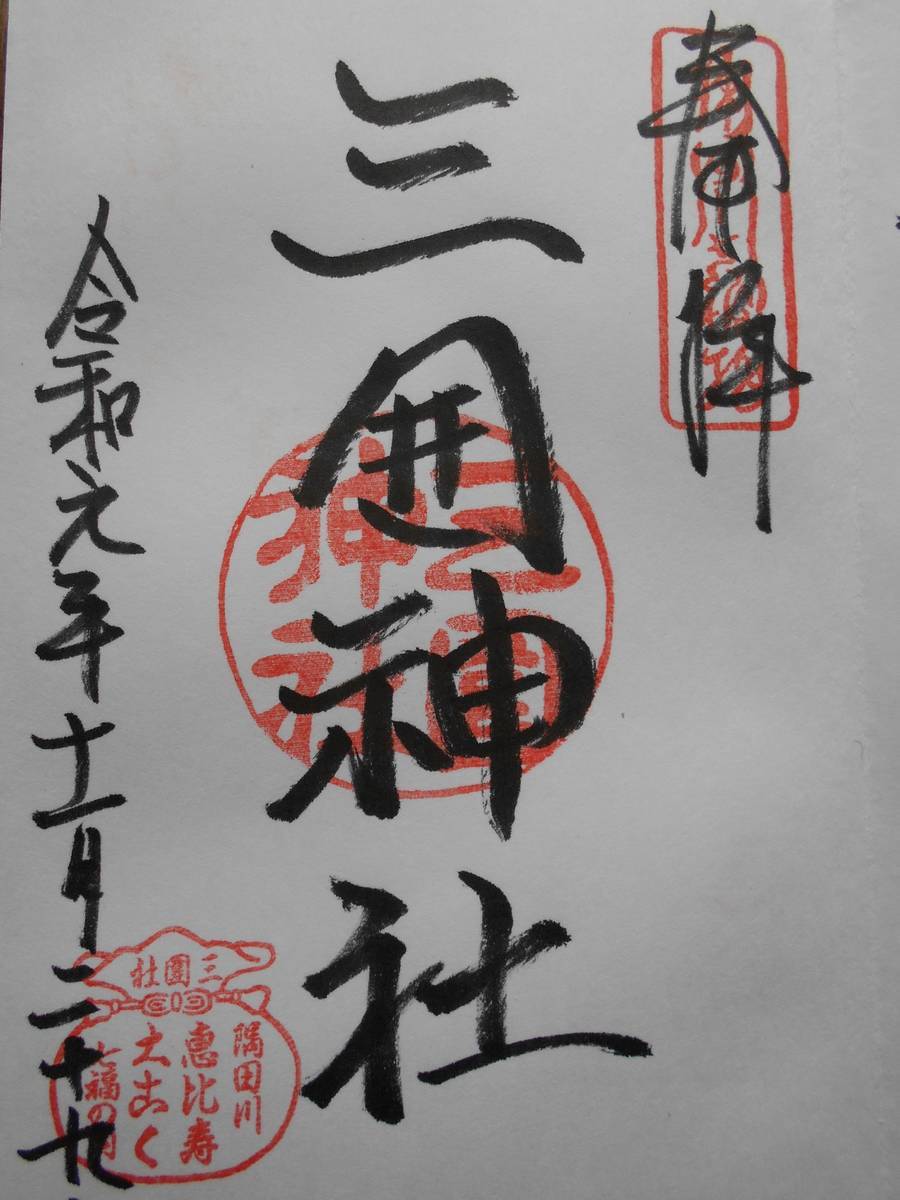 奉拝
三囲神社
三囲神社
令和元年十一月二十九
三圍社
隅田川
恵比寿
大こく
七福の内